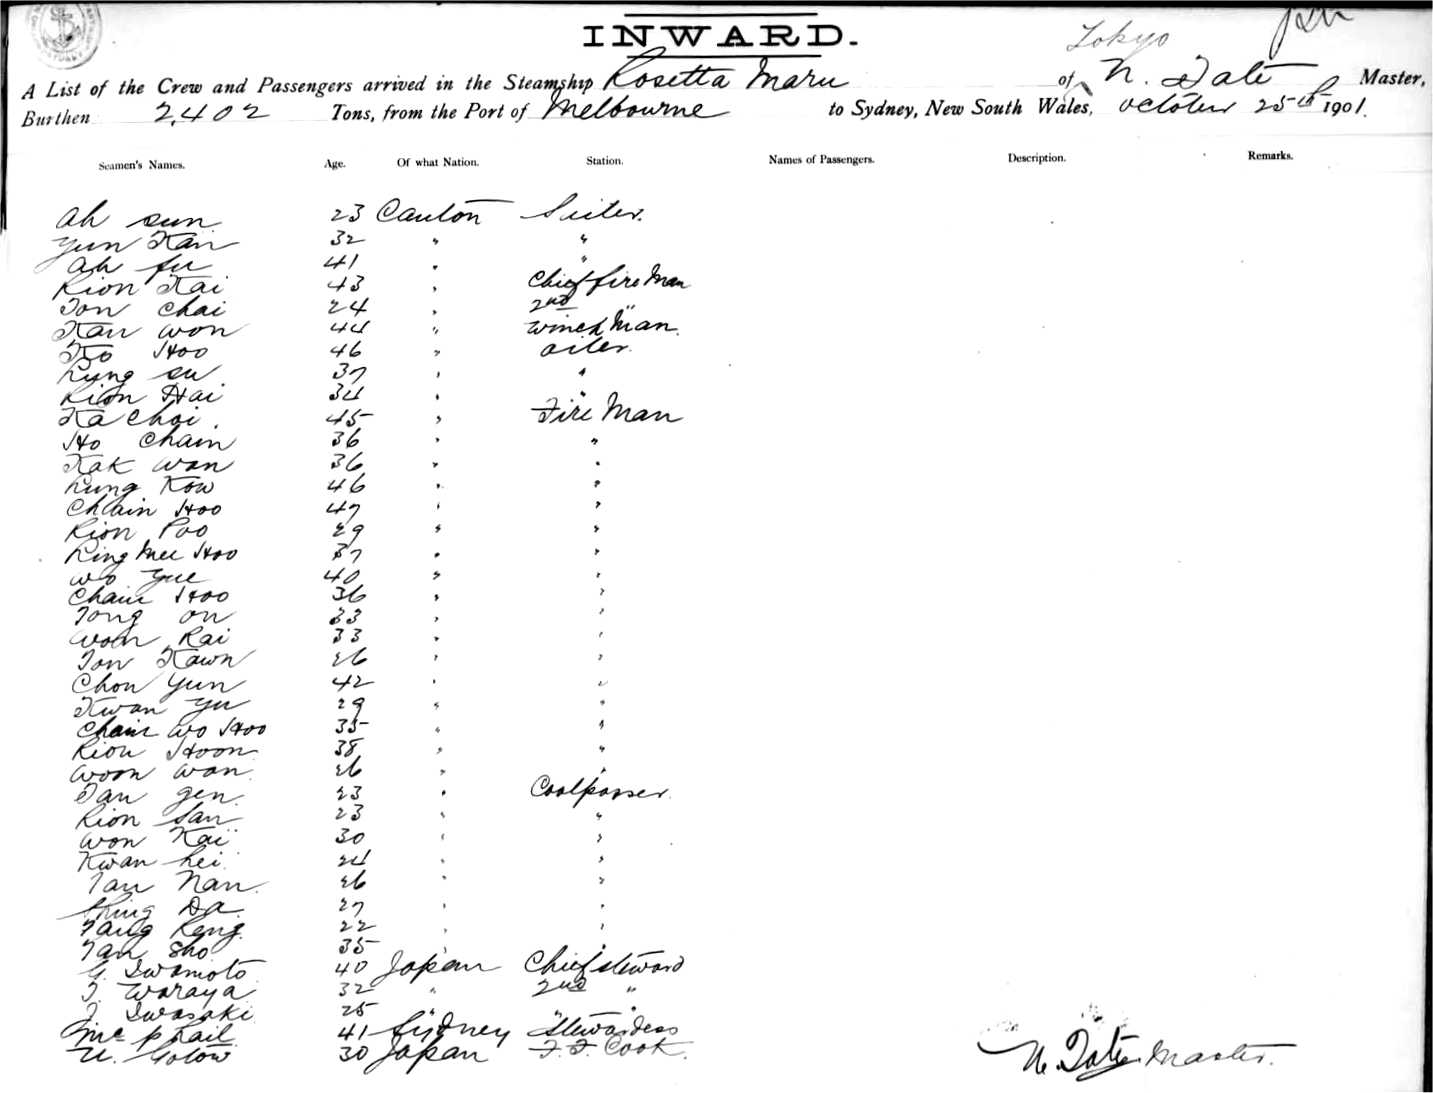 INWARD.
Tokyo
A List of the Crew and Passengers arrived in the Steamship Rosetta Maru of N. Tate Master,
Burthen 2,402 Tons, from the Port of Melbourne to Sydney, New South Wales, October 25th 1901.
Seamen's Names. Age. Of what Nation. Station. Names of Passengers. Description. Remarks.
Ah sun 23 Canton
Yun Kan 32 " "
Ah fu 41 " "
Rion Kai 43 " Chief fire Man
Ton Chai 24 " 2nd "
Kan won 44 " Winch Man.
Ko Hoo 46 " oiler.
Lung su 37 " "
Rion Hai 34 " "
Ka Choi. 45 " Fire Man
Ho Chain 36 " "
Kak wan 36 " "
Lung Kow 46 " "
Chain Hoo 47 " "
Rion Poo 29 " "
Ring Mee Hoo 37 " "
wo yue 40 " "
Chain Hoo 36 " "
Tong on 33 " "
won Rai 33 " "
Ton Kawn 26 " "
Chon Yun 42 " "
Kwan Yu 29 " "
Chain wo Hoo 35 " "
Rion Hoon 38 " "
woon wan 26 " "
Tan gen. 23 " Coalpasser.
Rion San 23 " "
won Kai 30 " "
Kwan hei 24 " "
Tan Nan. 26 " "
Shing Da. 27 " "
Tang Keng. 22 " "
Tan Sho 35 " "
G. Iwamoto 40 Japan Chief steward
T. Waraya 32 " 2nd "
J. Iwasaki 25 " "
Mc phail 41 Sydney Stewardess
U. Gotow 30 Japan F. F. Cook.
N. Tate Master.